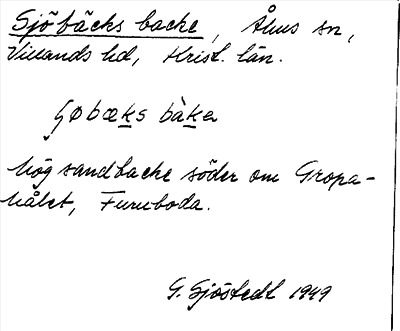 Sjöbäcks backe, Åhus sn,
Villands hd, Krist. län.
Ʒøbæks bàka
hög sandbacke söder om Gropa-
hålet, Furuboda.
G. Sjöstedt 1949